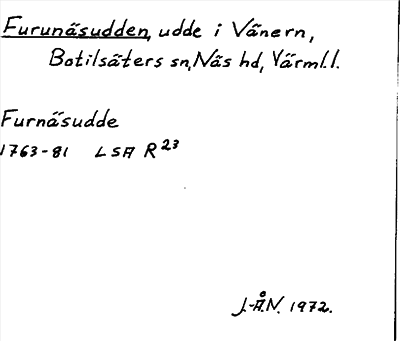 Furunäsudden, udde i Vänern,
Botilsäters sn, Näs hd, Värml. l.
Furnäsudde
1763-81 LSA R 23
J.-Å.N. 1972.